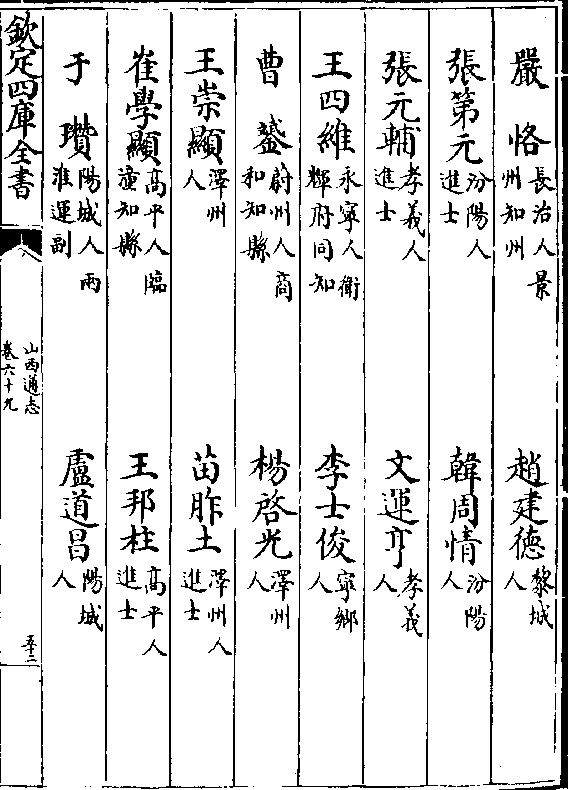 嚴恪長治人景州知州　趙建德黎城人
張第元汾陽人進士　韓周情汾陽人
張元輔孝義人進士　文運亨孝義人
王四維永寧人衛輝府同知　李士俊寧鄉人
曹鎜蔚州人商和知縣　楊啓光澤州人
王崇顯澤州人　苗胙土澤州人進士
崔學顯高平人臨潼知縣　王邦柱高平人進士
于瓚陽城人兩淮運副　盧道昌陽城人
欽定四庫全書　山西通志卷六十九　五十二